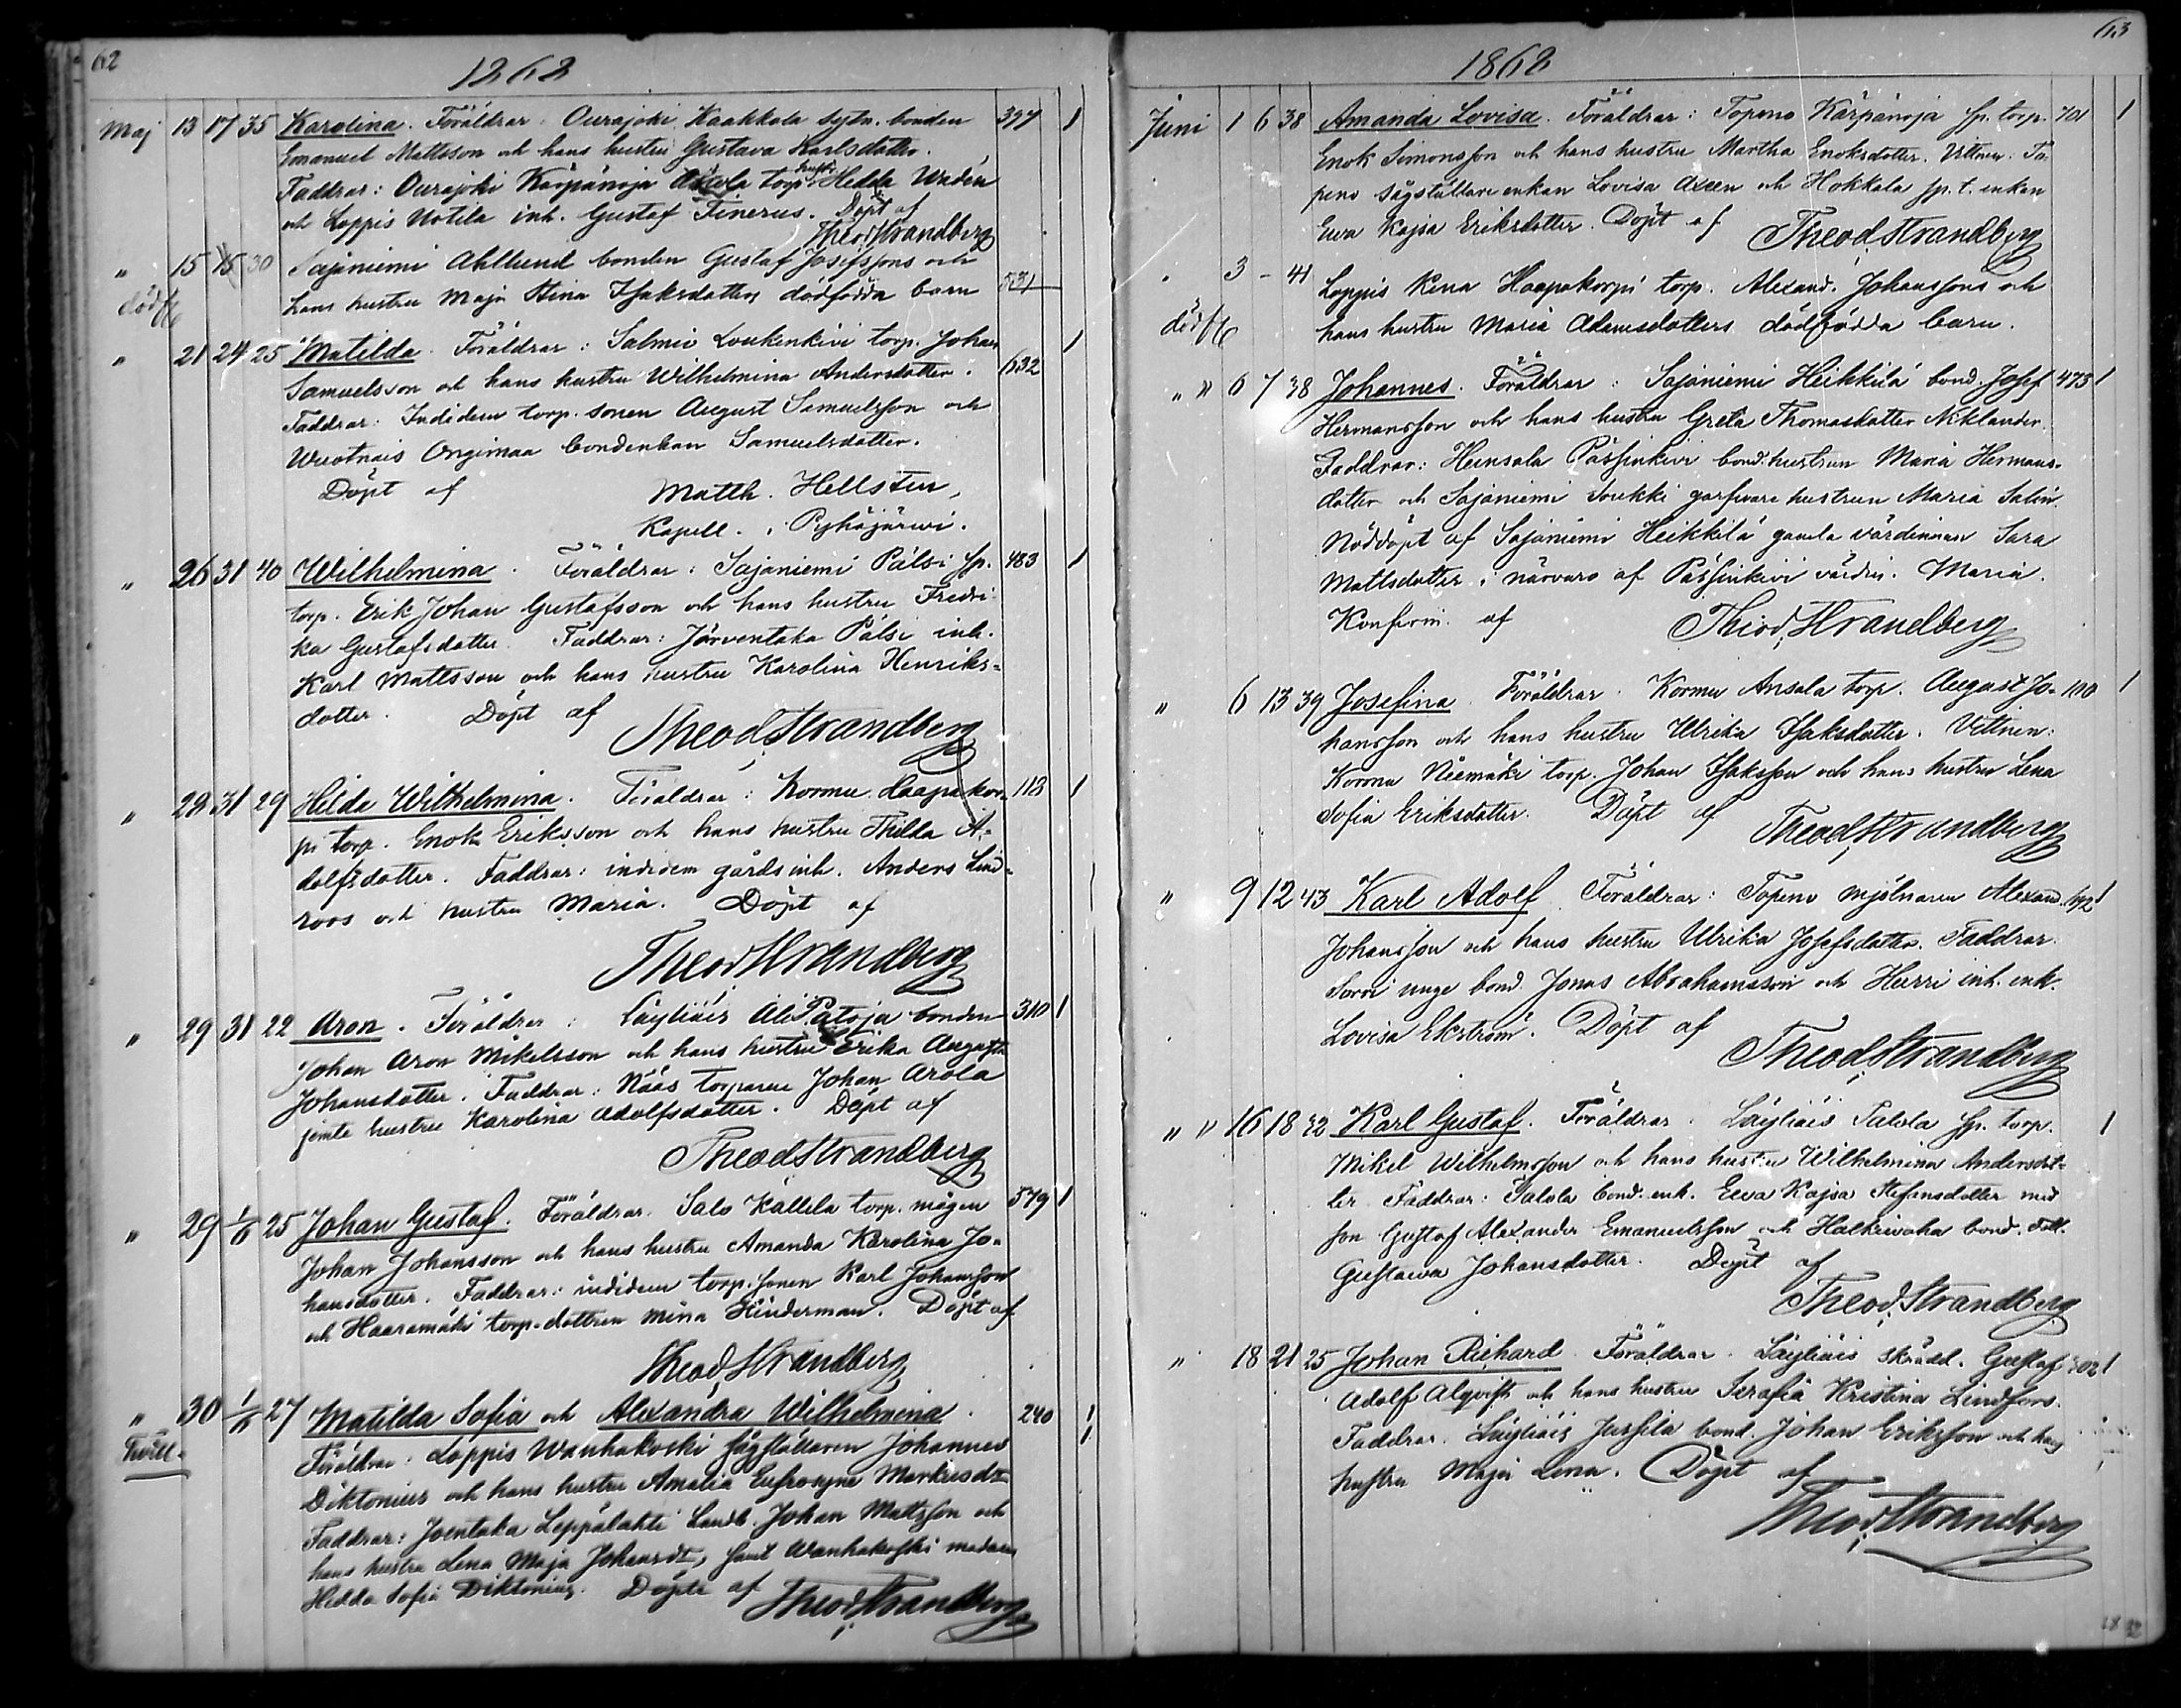 62
1862
Maj 13 17 35 Karolina. Föräldrar. Ourajoki Kaakkola sytn. bonden 397 1
Emanuel Mattsson och hans hustru Gustava Karlsdotter.
Faddrar: Ourajoki Kärpänoja torp. hustr. Hedda Wadén
och Loppis Uotila inh. Gustaf Finerus. Döpt af
Theod Strandberg
" 15 30 Sajaniemi Ahllund bonden Gustaf Josefssons och
dödf. hans hustru Maja Stina Isaksdotters dödfödda barn 531
" 21 24 25 Matilda. Föräldrar: Salmis Loukenkivi torp. Johan 1
Samuelsson och hans hustru Wilhelmina Andersdotter. 632
Faddrar: Indidem torp. sonen August Samuelsson och
Wuotnais Ongimaa bondenkan Samuelsdotter.
Döpt af Matth. Hellsten,
Kapell. i Pyhäjärwi.
" 26 31 40 Wilhelmina. Föräldrar: Sajaniemi Pälsi sp. 483 1
torp. Erik Johan Gustafsson och hans hustru Fredri-
ka Gustafsdotter. Faddrar: Järventaka Pälsi inh.
Karl Mattsson och hans hustru Karolina Henriks=
dotter. Döpt af Theod Strandberg
" 28 31 29 Hilda Wilhelmina. Föräldrar: Kormu Haapakor= 113 1
pi torp. Enok Eriksson och hans hustru Thilda A=
dolfsdotter. Faddrar: indidem gårds inh. Anders Lind=
roos och hustru Maria. Döpt af
Theod Strandberg
" 29 31 22 Aron. Föräldrar: Läyliäis Ali Patoja bonden 310 1
Johan Aron Mikelsson och hans hustru Erika Augusta
Johansdotter. Faddrar: Nääs torparen Johan Arola
jemte hustru Karolina Adolfsdotter. Döpt af
Theod Strandberg
" 29 1/6 25 Johan Gustaf. Föräldrar. Salo Kallela torp. mågen 579 1
Johan Johansson och hans hustru Amanda Karolina Jo=
hansdotter. Faddrar: indidem torp. sonen Karl Johansson
och Haaramäki torp. dottren Mina Hinderman. Döpt af
Theod Strandberg
" 30 1/6 27 Matilda Sofia och Alexandra Wilhelmina. 240 1
Twill. Föräldrar: Loppis Wanhakoski sågställaren Johannes 1
Diktonius och hans hustru Amalia Eufrosyne Markusdt
Faddrar: Joentaka Leppälahti Landb. Johan Mattsson och
hans hustru Lena Maja Johansdt, samt Wanhakoski madam
Hedda Sofia Diktonius. Döpte af Theod Strandberg
63
1862
Juni 1 6 38 Amanda Lovisa. Föräldrar: Topeno Kärpänoja sp. torp. 701 1
Enok Simonsson och hans hustru Martha Enoksdotter. Vittnen. To
peno sågställare enkan Lovisa Axeen och Hokkala sp. t. enkan
Ewa Kajsa Eriksdotter. Döpt af Theod Strandberg
" 3 - 41 Loppis Kena Haapakorpi torp. Alexand. Johanssons och
dödf. hans hustru Maria Adamsdotters dödfödda barn.
" " 6 7 38 Johannes. Föräldrar: Sajaniemi Heikkilä bond. Josef 473 1
Hermansson och hans hustru Greta Thomasdotter Niklander.
Faddrar: Hunsala Pässinkivi bond. hustrun Maria Hermans-
dotter och Sajaniemi Soukki garfvare hustrun Maria Salin.
Nöddöpt af Sajaniemi Heikkilä gamla värdinnan Sara
Mattsdotter i närvaro af Pässinkivi värdin. Maria.
Konfirm. af Theod. Strandberg
" 6 13 39 Josefina. Föräldrar. Kormu Ansala torp. August Jo= 100 1
hansson och hans hustru Ulrika Isaksdotter. Vittnen:
Kormu Niemäki torp. Johan Isaksson och hans hustru Lena
Sofia Eriksdotter. Döpt af Theod Strandberg
" 9 12 43 Karl Adolf. Föräldrar: Topeno mjölnaren Alexand. 692 1
Johansson och hans hustru Ulrika Josefsdotter. Faddrar.
Sorri unge bond. Jonas Abrahamsson och Hurri inh. enk.
Lovisa Ekström. Döpt af
Theod Strandberg
" " 16 18 32 Karl Gustaf. Föräldrar. Läyliäis Talola sp. torp. 1
Mikel Wilhelmsson och hans hustru Wilhelmina Andersdot=
ter. Faddrar: Talola bond. enk. Eeva Kajsa Stefansdotter med
son Gustaf Alexander Emanuelsson och Halkivaha bond. dott.
Gustawa Johansdotter. Döpt af
Theod. Strandberg
" 18 21 25 Johan Richard. Föräldrar. Läyliäis skrädd. Gustaf 302 1
Adolf Alqvist och hans hustru Serafia Kristina Lindfors.
Faddrar. Läyliäis Jussila bond. Johan Eriksson och hans
hustru Maja Lena. Döpt af
Theod Strandberg